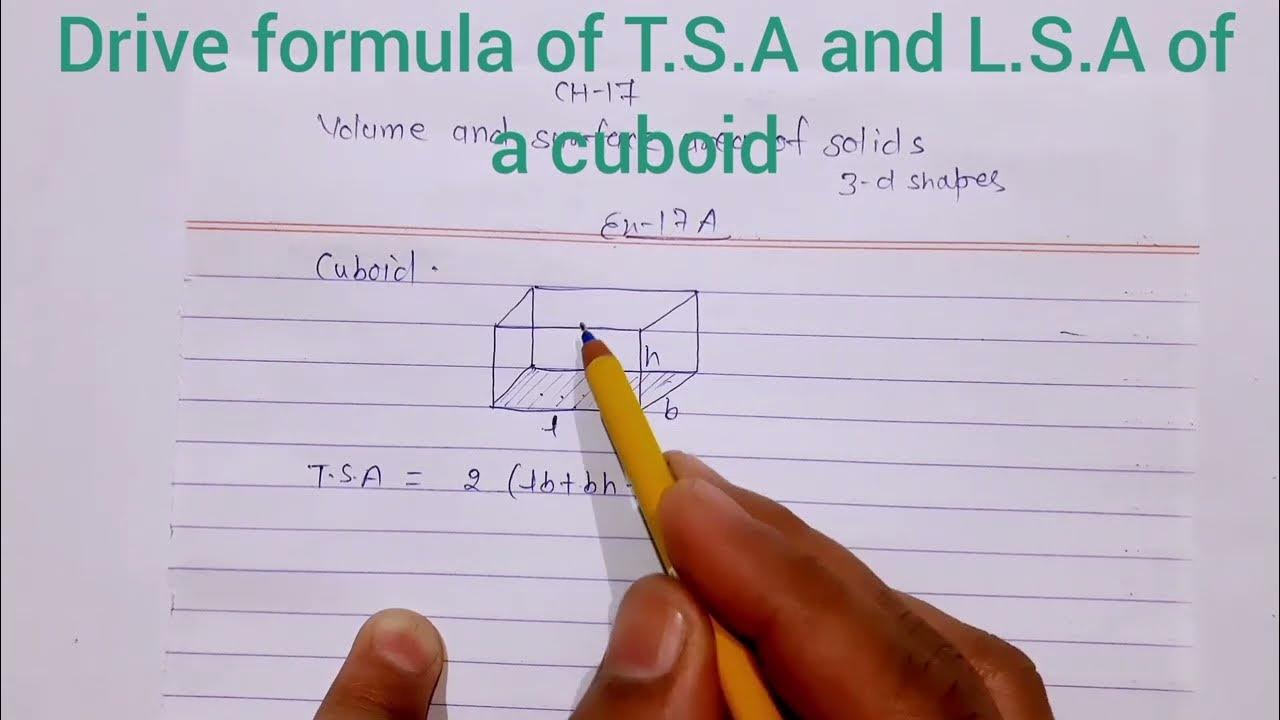 Drive formula of T.S.A and L.S.A of
a cuboid
CH-17
Volume and surface area of solids
3-d shapes
Ex-17A
Cuboid.
h
b
l
T.S.A = 2 (lb+bh